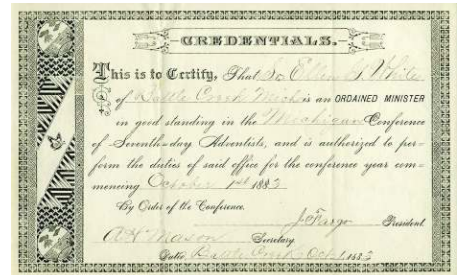 CREDENTIALS.
This is to Certify, That Sr. Ellen G. White
of Battle Creek, Mich is an ORDAINED MINISTER
in good standing in the Michigan Conference
of Seventh-day Adventists, and is authorized to per-
form the duties of said office for the conference year com-
mencing October 1st 1883
By Order of the Conference.
J. Fargo President
A. H. Mason Secretary
Date, Battle Creek, Oct. 1, 1883